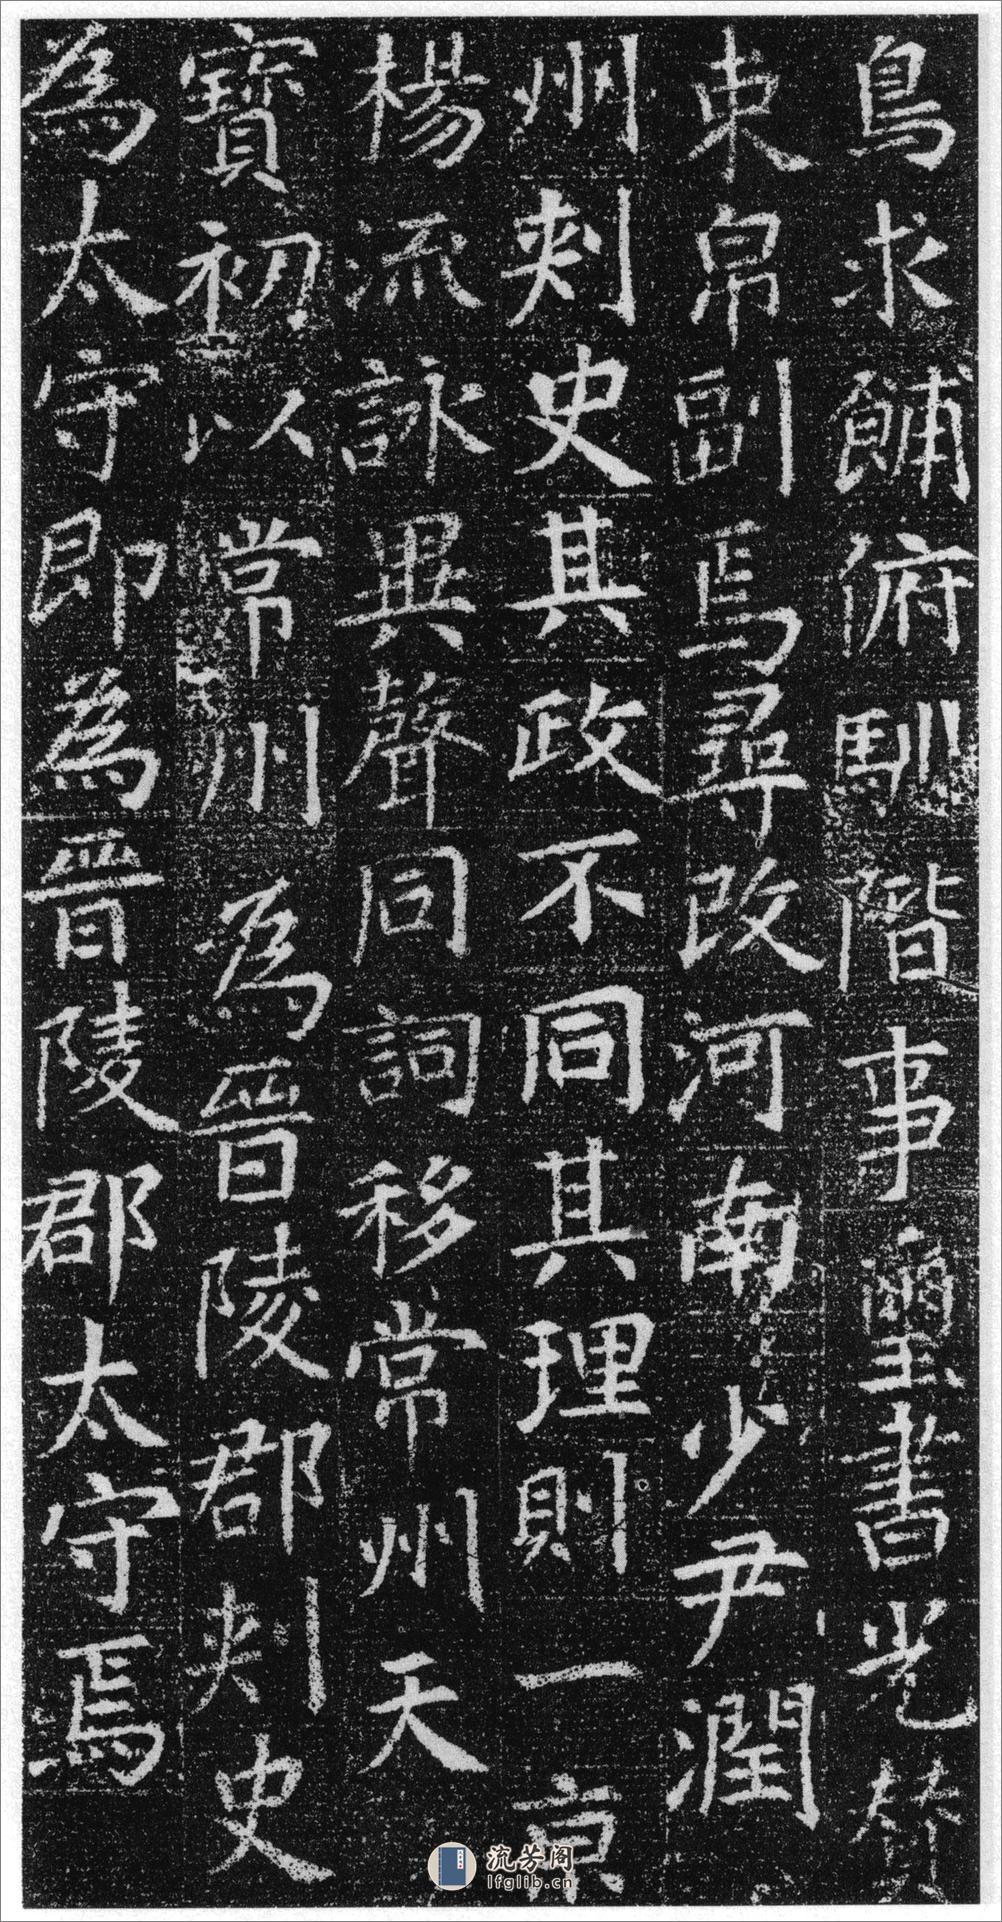 鳥求餔俯馴階事璽書光賁
束帛副焉尋改河南少尹潤
州刾史其政不同其理則一京
楊流詠異聲同詞移常州天
寳初以常州為晉陵郡刾史
為太守即為晉陵郡太守焉
流芳阁
lfglib.cn